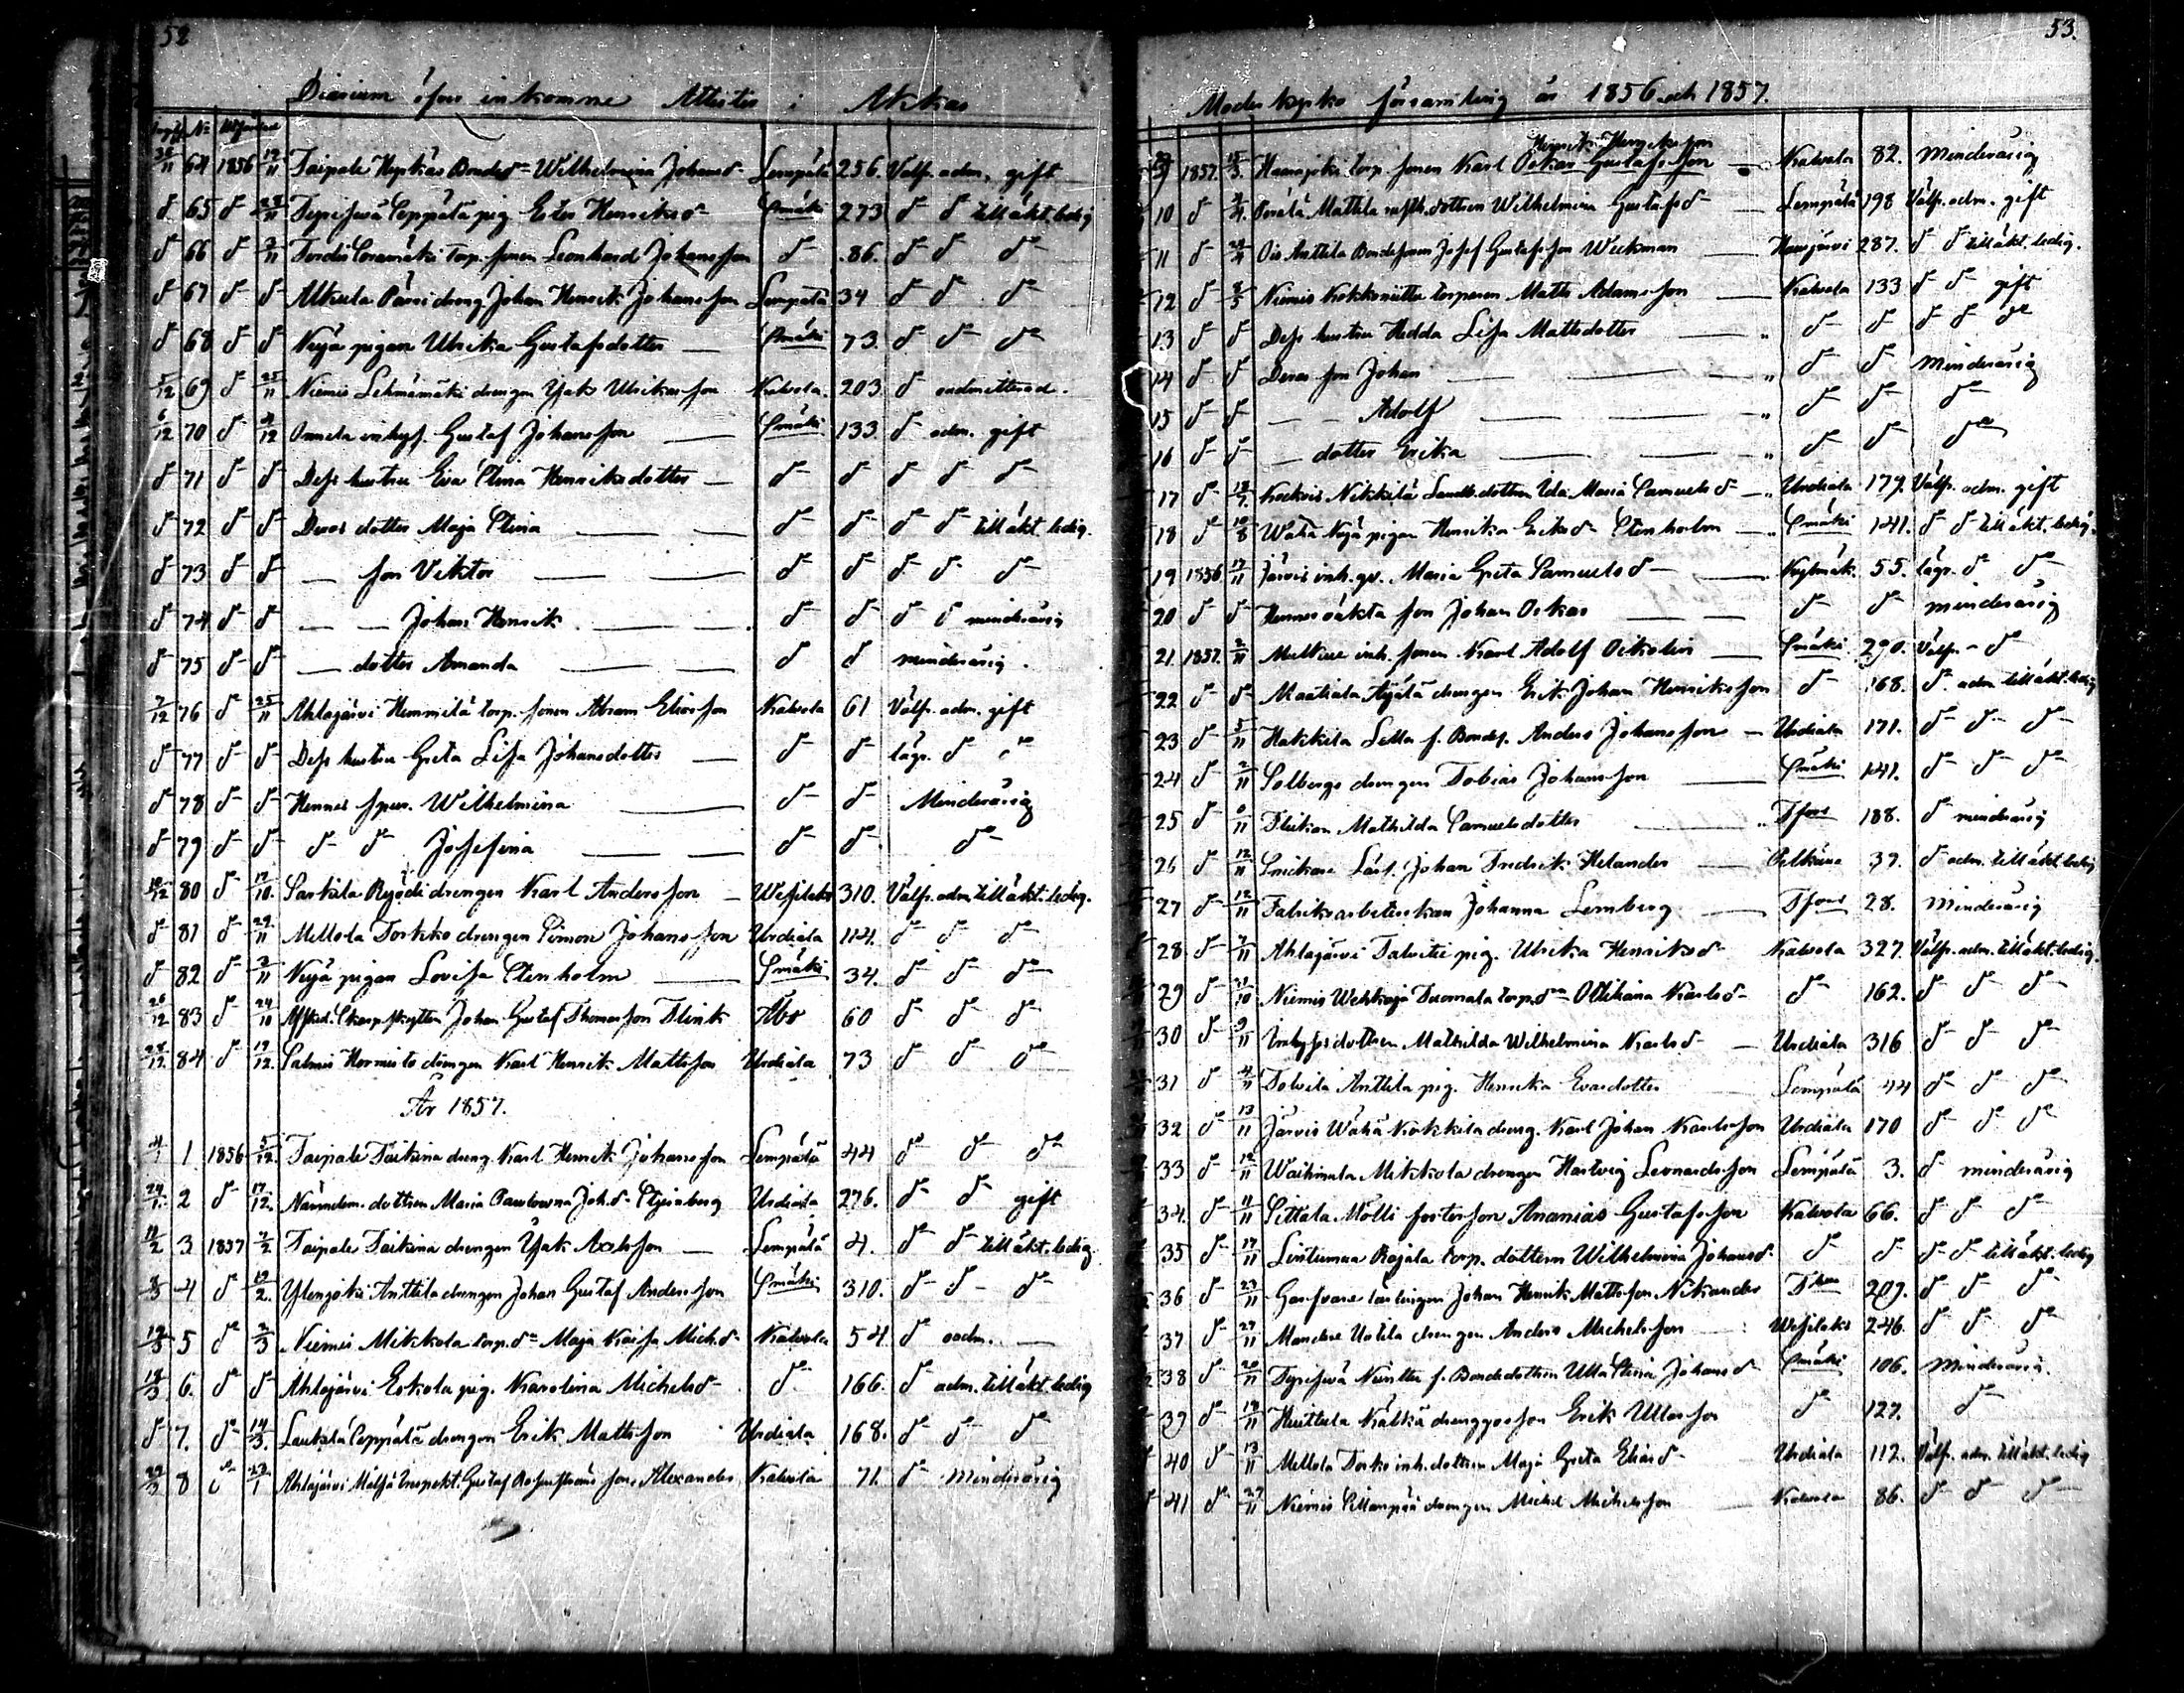 52
Diarium öfver inkomne Attester i Akkas
No
30/11 64 1856 19/11 Taipale Heikkas Bonded:n Wilhelmina Johansd:r Lempälä 256. Välfr. adm. gift
d:o 65 d:o 23/11 pig. Ester Henriksd:r Smäki 273 d:o d:o till äkt. ledig
d:o 66 d:o 2/11 torp. sonen Leonhard Johansson d:o 86. d:o d:o d:o
d:o 67 d:o d:o dreng Johan Henrik Johansson Lempälä 34 d:o d:o d:o
d:o 68 d:o d:o Nyyä pigan Ulrika Gustafsdotter Smäki 73. d:o d:o d:o
5/12 69 d:o 25/11 Niemis Lehmämäki drengen Isak Ulrikasson Kalvola 203. d:o oadmitterad.
6/12 70 d:o 4/12 Onnela inhys. Gustaf Johansson Smäki 133 d:o adm. gift
d:o 71 d:o d:o Dess hustru Eva Stina Henriksdotter d:o d:o d:o d:o d:o
d:o 72 d:o d:o Deras dotter Maja Stina d:o d:o d:o d:o till äkt. ledig.
d:o 73 d:o d:o — son Viktor d:o d:o d:o d:o d:o
d:o 74 d:o d:o — — Johan Henrik d:o d:o d:o d:o minderårig
d:o 75 d:o d:o — dotter Amanda d:o d:o minderårig.
7/12 76 d:o 25/11 Ahlajärvi Hemmilä torp. sonen Abram Eliasson Kalvola 61 Välfr. adm. gift
d:o 77 d:o d:o Dess hustru Greta Lisa Johansdotter d:o d:o lägr. d:o d:o
d:o 78 d:o d:o Hennes spur. Wilhelmina d:o d:o Minderårig
d:o 79 d:o d:o d:o d:o Josefina d:o d:o d:o
10/12 80 d:o 17/10. Sarkila Ryödi drengen Karl Andersson Wesilaks 310. Välfr. adm. till äkt. ledig.
d:o 81 d:o 29/11 Mellola Torkko drengen Simon Johansson Urdiala 114. d:o d:o d:o
d:o 82 d:o 2/11 Nyyä pigan Lovisa Stenholm Smäki 34. d:o d:o d:o
26/12 83 d:o 24/10 Afsked. Skarpskytten Johan Gustaf Thomasson Flink Åbo 60 d:o d:o d:o
28/12 84 d:o 19/12. Salmis Hormisto drengen Karl Henrik Mattsson Urdiala 73 d:o d:o d:o
År 1857.
4/1 1 1856 5/12. Taipale Taikina dreng. Karl Henrik Johansson Lempälä 44 d:o d:o d:o
24/1. 2 d:o 17/12. Nämndem. dottren Maria Joh.d:r Urdiala 276. d:o d:o gift
11/2 3 1857 7/2 Taipale Taikina drengen Isak Axelsson Lempälä 4. d:o d:o till äkt. ledig
8/3 4 d:o 19/2. Ylenjoki Anttila drengen Johan Gustaf Andersson Smäki 310. d:o d:o d:o
19/3 5 d:o 2/3 Niemis Mikkola torp.d:n Maja Kaisa Mich.d:r Kalvola 54. d:o oadm. —
19/3 6. d:o d:o Ahlajärvi Eskola pig. Karolina Michelsd:r d:o 166. d:o adm. till äkt. ledig
d:o 7. d:o 14/3. Laukala Seppälä drengen Erik Mattsson Urdiala 168. d:o d:o d:o
29/3 8 d:o 27/1 Ahlajärvi Inspekt. Gustaf son. Alexander Kalvola 71. d:o Minderårig
53.
Moderkyrko församling år 1856 och 1857.
Henrik Henriksson
9 1857. 15/3. torp. sonen Karl Oskar Gustafsson Kalvola 82. Minderårig
10 d:o Mattila dottren Wilhelmina Gustafsd:r Lempälä 198 Välfr. adm. gift
11 d:o Anttila Bondesonen Josef Gustafsson Weckman Hausjärvi 287. d:o d:o till äkt. ledig.
12 d:o 8/5 Niemis torparen Matts Adamsson Kalvola 133 d:o d:o gift
13 d:o d:o Dess hustru Hedda Lisa Mattsdotter d:o d:o d:o d:o d:o
14 d:o d:o Deras son Johan d:o d:o Minderårig
15 d:o d:o — — Adolf d:o d:o d:o
16 d:o d:o — dotter Erika d:o d:o d:o
17 d:o 13/7. Nikkilä dottren Ida Maria Samuelsd:r Urdiala 179. Välfr. adm. gift
18 d:o 10/8 Waha Nyyä pigan Henrika Eriksd:r Stenholm Smäki 141. d:o d:o till äkt. ledig.
19 1856 17/11 Järvis inh. qv. Maria Greta Samuelsd:r 55. lägr. d:o d:o
20 d:o d:o Hennes oäkta son Johan Oskar d:o d:o minderårig
21 1857. 2/11 inh. sonen Karl Adolf Smäki 290. Välfr. — d:o
22 d:o d:o Maatiala drengen Erik Johan Henriksson d:o 168. d:o adm. till äkt. ledig
23 d:o 5/11 Hakkila f. Bondes. Anders Johansson Urdiala 171. d:o d:o d:o
24 d:o 2/11 Solbergs drengen Tobias Johansson Smäki 141. d:o d:o d:o
25 d:o Flickan Mathilda Samuelsdotter Tfors 188. d:o minderårig
26 d:o 12/11 Johan Fredrik Helander Pelkäne 37. d:o adm. till äkt. ledig
27 d:o 12/11 Fabriksarbeterskan Johanna Lemberg Tfors 28. Minderårig
28 d:o 7/11 Ahlajärvi Talvitie pig. Ulrika Henriksd:r Kalvola 327. Välfr. adm. till äkt. ledig.
29 d:o 21/10 Niemis Tuomala torp.d:n Karlsd:r d:o 162. d:o d:o d:o
30 d:o 9/11 Inhysesdottren Mathilda Wilhelmina Karlsd:r Urdiala 316 d:o d:o d:o
31 d:o 4/11 Tolvila Anttila pig. Henrika Evasdotter Lempälä 44 d:o d:o d:o
32 d:o 13/11 Järvis Waha Kokkila dreng. Karl Johan Karlsson Urdiala 170 d:o d:o d:o
33 d:o 12/11 Mikkola drengen Hartvig Leonardsson Lempälä 3. d:o minderårig
34. d:o 11/11 Sittala Mölli fosterson Ananias Gustafsson Kalvola 66. d:o d:o d:o
35 d:o 17/11 Lintumaa Rajala torp. dottern Wilhelmina Johansd:r d:o d:o d:o d:o till äkt. ledig
36 d:o 23/11 Garfvare lärlingen Johan Henrik Mattsson Nikander 209. d:o d:o d:o
37 d:o 27/11 Uotila drengen Anders Michelsson Wesilaks 246. d:o d:o d:o
38 d:o 20/11 f. Bondedottren Ulla Stina Johansd:r Smäki 106. Minderårig.
39 d:o 18/11 Huittula drenggosson Erik Ullasson d:o 127. d:o
40 d:o 13/11 Mellola Torko inh. dottren Maja Greta Eliasd:r Urdiala 112. Välfr. adm. till äkt. ledig
41 d:o 27/11 Niemis drengen Michel Michelsson Kalvola 86. d:o d:o d:o